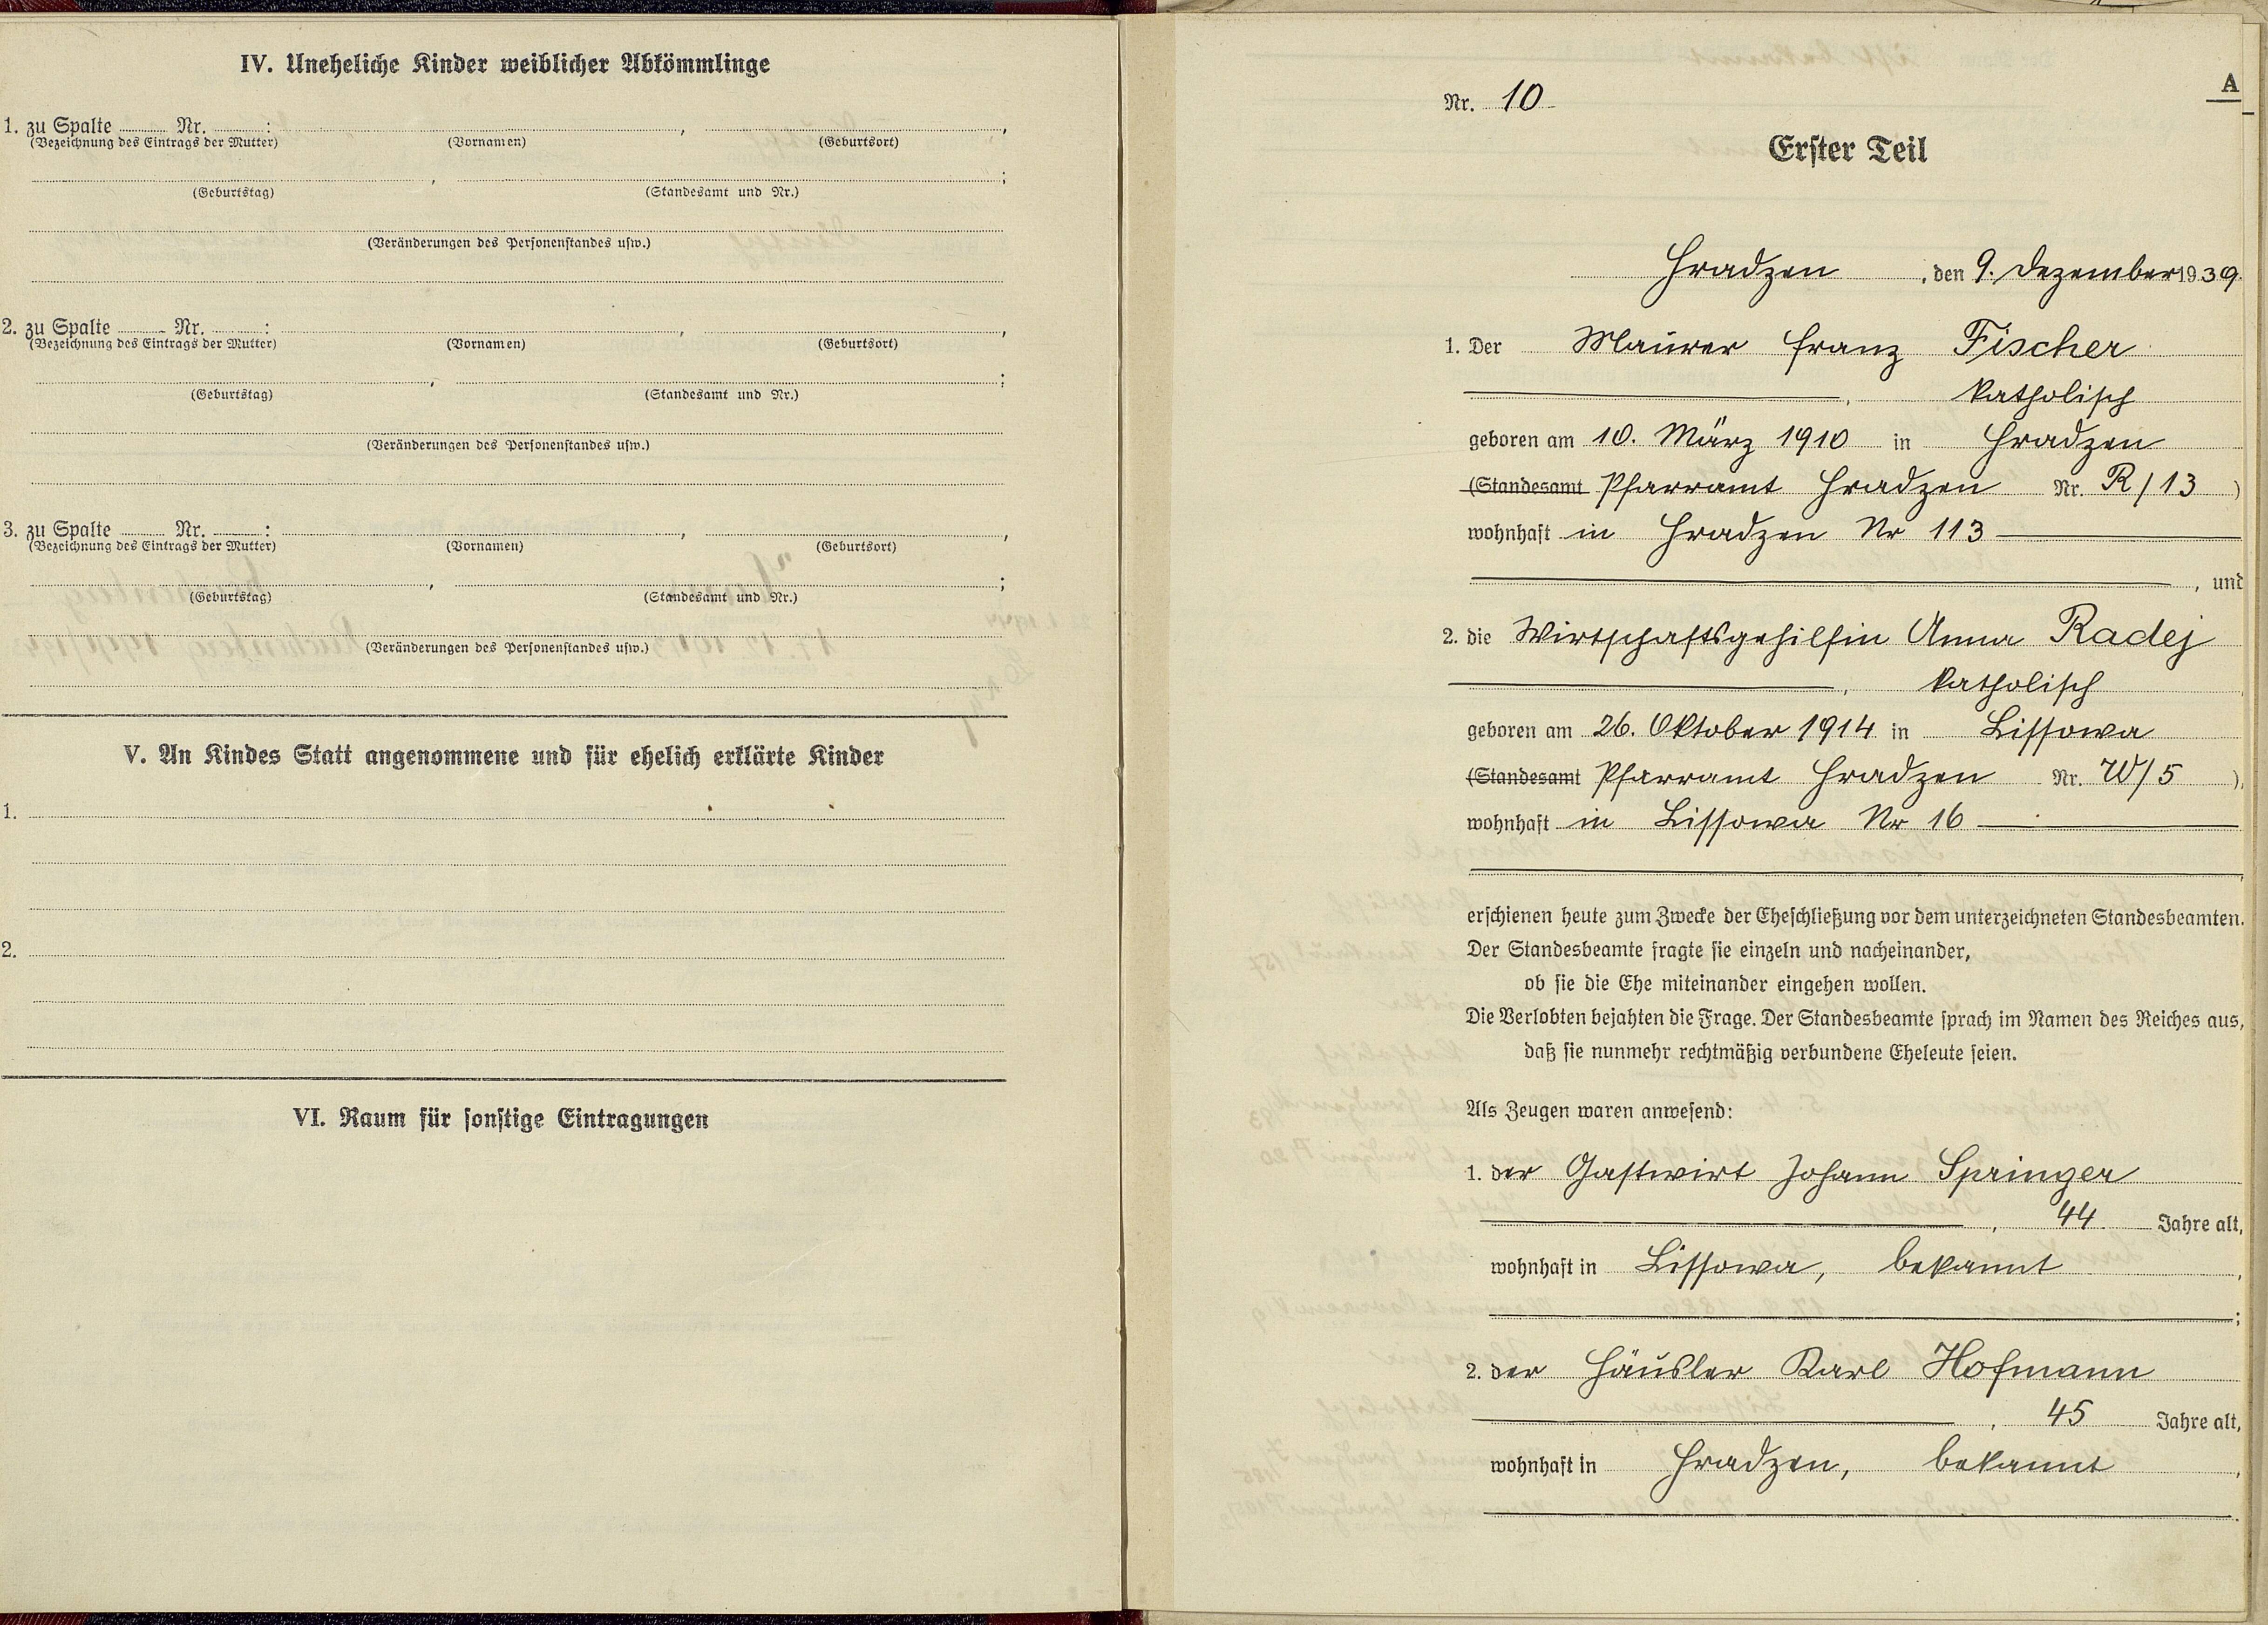 IV. Uneheliche Kinder weiblicher Abkömmlinge
1. zu Spalte Nr. : , ,
(Bezeichnung des Eintrags der Mutter) (Vornamen) (Geburtsort)
, ;
(Geburtstag) (Standesamt und Nr.)
(Veränderungen des Personenstandes usw.)
2. zu Spalte Nr. : , ,
(Bezeichnung des Eintrags der Mutter) (Vornamen) (Geburtsort)
, ;
(Geburtstag) (Standesamt und Nr.)
(Veränderungen des Personenstandes usw.)
3. zu Spalte Nr. : , ,
(Bezeichnung des Eintrags der Mutter) (Vornamen) (Geburtsort)
, ;
(Geburtstag) (Standesamt und Nr.)
(Veränderungen des Personenstandes usw.)
V. An Kindes Statt angenommene und für ehelich erklärte Kinder
1.
2.
VI. Raum für sonstige Eintragungen
A
Nr. 10
Erster Teil
Hradzen, den 9. Dezember 1939.
1. Der Maurer Franz Fischer
, katholisch
geboren am 10. März 1910 in Hradzen
(Standesamt Pfarramt Hradzen Nr. R/13)
wohnhaft in Hradzen Nr 113
, und
2. die Wirtschaftsgehilfin Anna Radej
, katholisch
geboren am 26. Oktober 1914 in Lissowa
(Standesamt Pfarramt Hradzen Nr. W/5),
wohnhaft in Lissowa Nr 16
erschienen heute zum Zwecke der Eheschließung vor dem unterzeichneten Standesbeamten.
Der Standesbeamte fragte sie einzeln und nacheinander,
ob sie die Ehe miteinander eingehen wollen.
Die Verlobten bejahten die Frage. Der Standesbeamte sprach im Namen des Reiches aus,
daß sie nunmehr rechtmäßig verbundene Eheleute seien.
Als Zeugen waren anwesend:
1. der Gastwirt Johann Springer
, 44 Jahre alt,
wohnhaft in Lissowa, bekannt,
;
2. der Häusler Karl Hofmann
, 45 Jahre alt,
wohnhaft in Hradzen, bekannt,
.